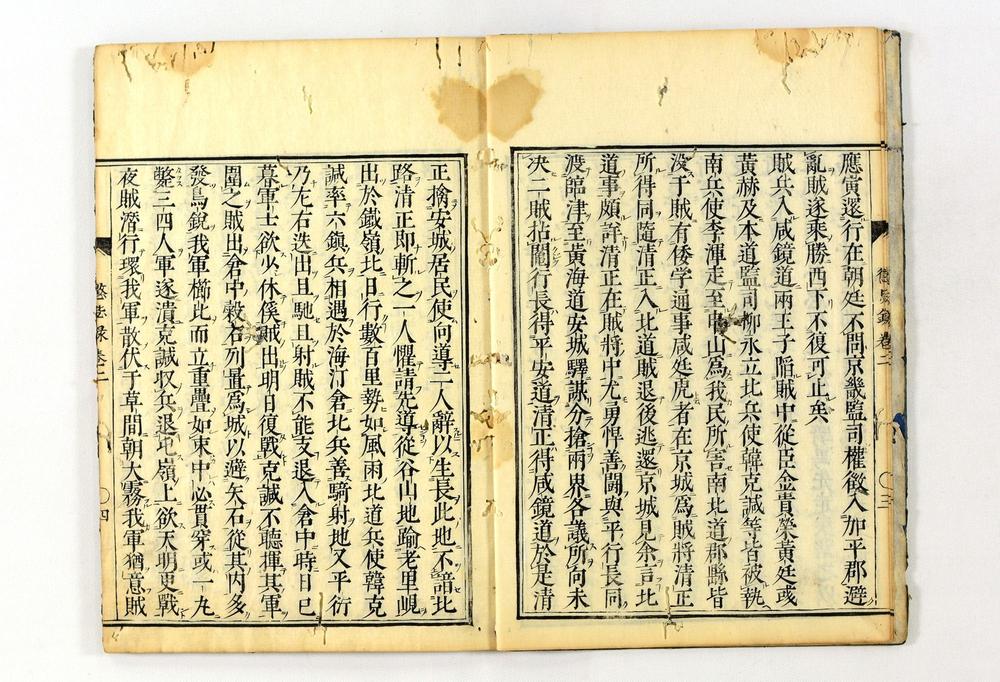 應寅還行在朝廷不問京畿監司權徵入加平郡避
亂賊遂乘勝西下不復可止矣
賊兵入咸鏡道兩王子陷賊中從臣金貴榮黃廷彧
黃赫及本道監司柳永立北兵使韓克諴等皆被執
南兵使李渾走至甲山爲我民所害南北道郡縣皆
没于賊有倭学通事咸廷虎者在京城爲賊將清正
所得同隨清正入北道賊退後逃還京城見余言北
道事頗詳清正在賊將中尤勇悍善鬪與平行長同
渡臨津至黃海道安城驛謀分搶兩界各議所向未
决二賊拈鬮行長得平安道清正得咸鏡道於是清
徵毖録 卷之二
〇三
正擒安城居民使向導二人辭以生長此地不諳北
路清正即斬之一人懼請先導從谷山地踰老里峴
出於鐵嶺北日行數百里勢如風雨北道兵使韓克
諴率六鎮兵相遇於海汀倉北兵善騎射地又平衍
乃左右迭出且馳且射賊不能支退入倉中時日已
暮軍士欲少休俟賊出明日復戰克諴不聽揮其軍
圍之賊出倉中穀石列置爲城以避矢石從其内多
發鳥銃我軍櫛比而立重疊如束中必貫穿或一丸
斃三四人軍遂潰克諴収兵退屯嶺上欲天明更戰
夜賊潛行環我軍散伏于草間朝大霧我軍猶意賊
毖录卷二
〇四